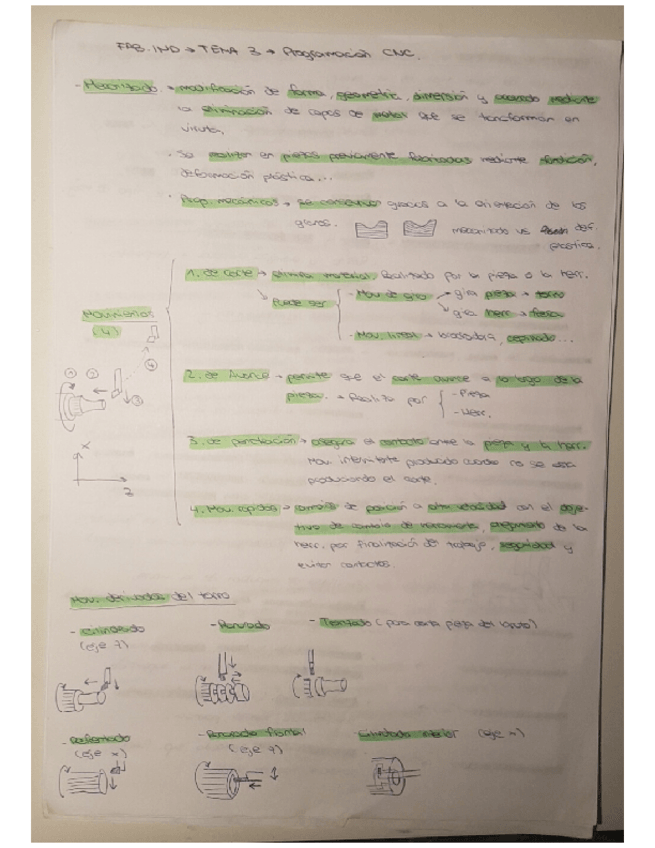 FAB. IND → TEMA 3 → Programación CNC.
- Mecanizado → modificación de forma, geometría, dimensión y acabado mediante
la eliminación de capas de metal que se transforman en
viruta.
· Se realizan en piezas previamente fabricadas mediante fundición,
deformación plástica...
· Prop. mecánicas → se conservan gracias a la orientación de los
granos.
mecanizado vs def.
plástica.
1. de Corte → elimina material. Realizado por la pieza o la herr.
Puede ser
- Mov. de giro
gira pieza → torno
gira herr → fresa
- Mov. lineal → brochadora, cepillado...
Movimientos
(4)
④
① ②
③
2. de Avance → permite que el corte avance a lo largo de la
pieza. → Realiza por
- Pieza
- Herr.
3. de penetración → asegura el contacto entre la pieza y la herr.
Mov. intermitente producido cuando no se está
produciendo el corte.
X
Z
4. Mov. rápidos → cambio de posición a alta velocidad con el obje-
tivo de cambio de herramienta, de la
herr. por finalización de trabajo, seguridad y
evitar contactos.
Mov. derivados del torno
- Cilindrado
(eje Z)
- Ranurado
- Tronzado (para cortar pieza del)
- Refrentado
(eje X)
- Ranurado frontal
(eje Z)
- Cilindrado interior (eje)